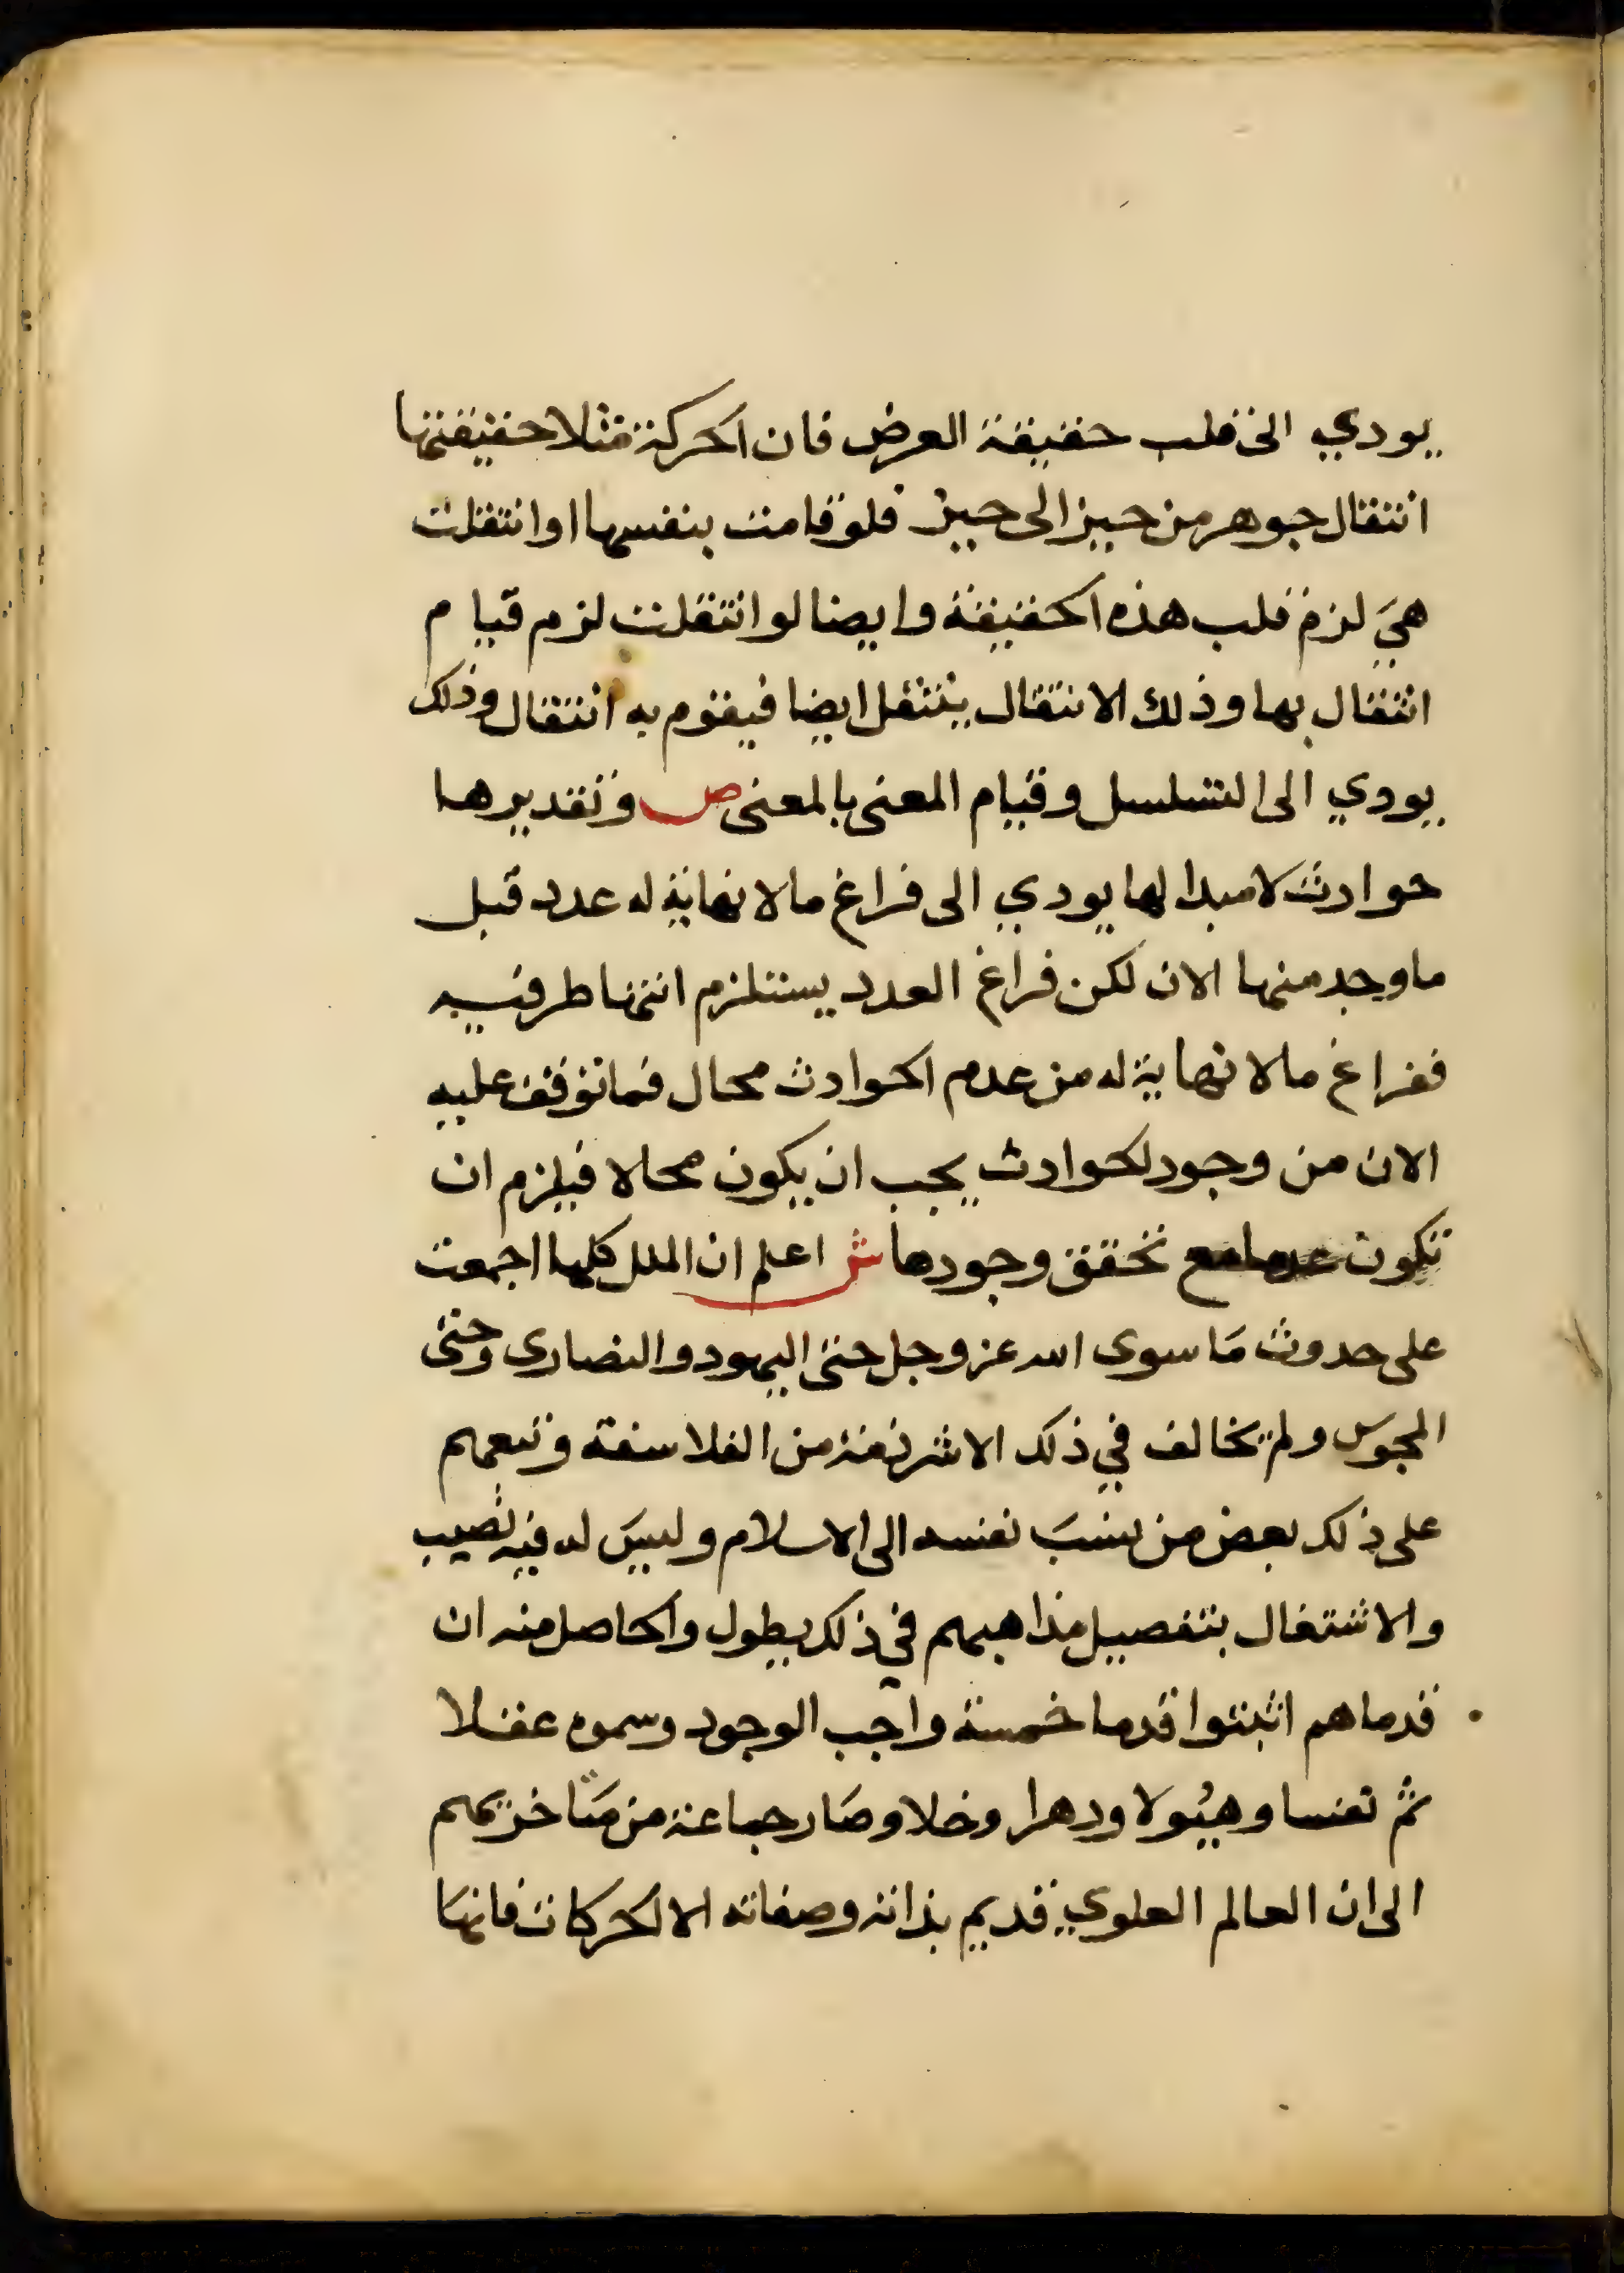 يودي الى قلب حقيقة العرض فان الحركة مثلا حقيقتها
انتقال جوهر من حيز الى حيز فلو قامت بنفسها او انتقلت
هي لزم قلب هذه الحقيقة وايضا لو انتقلت لزم قيام
انتقال بها وذلك الانتقال ينتقل ايضا فيقوم به انتقال وذلك
يودي الى التسلسل وقيام المعنى بالمعنى ص وتقديرها
حوادث لا مبدا لها يودي الى فراغ مالا نهاية له عدد قبل
ما وجد منها الان لكن فراغ العدد يستلزم انتها طرفيه
ففراغ مالا نهاية له من عدم الحوادث محال فما توقف عليه
الان من وجود لحوادث يجب ان يكون محالا فيلزم ان
تكون مع تحقق وجودها ش اعلم ان الملل كلها اجمعت
على حدوث ما سوى الله عز وجل حتى اليهود والنصارى وحتى
المجوس ولم يخالف في ذلك الا شرذمة من الفلاسفة وتبعهم
على ذلك بعض من ينسب نفسه الى الاسلام وليس له فيه نصيب
والاشتغال بتفصيل مذاهبهم في ذلك يطول والحاصل منه ان
قدماهم اثبتوا قدما خمسة واجب الوجود وسموه عقلا
ثم نفسا وهيولا ودهرا وخلا وصار جماعة من متاخريهم
الى ان العالم العلوي قديم بذاته وصفاته الا لحركات فانها